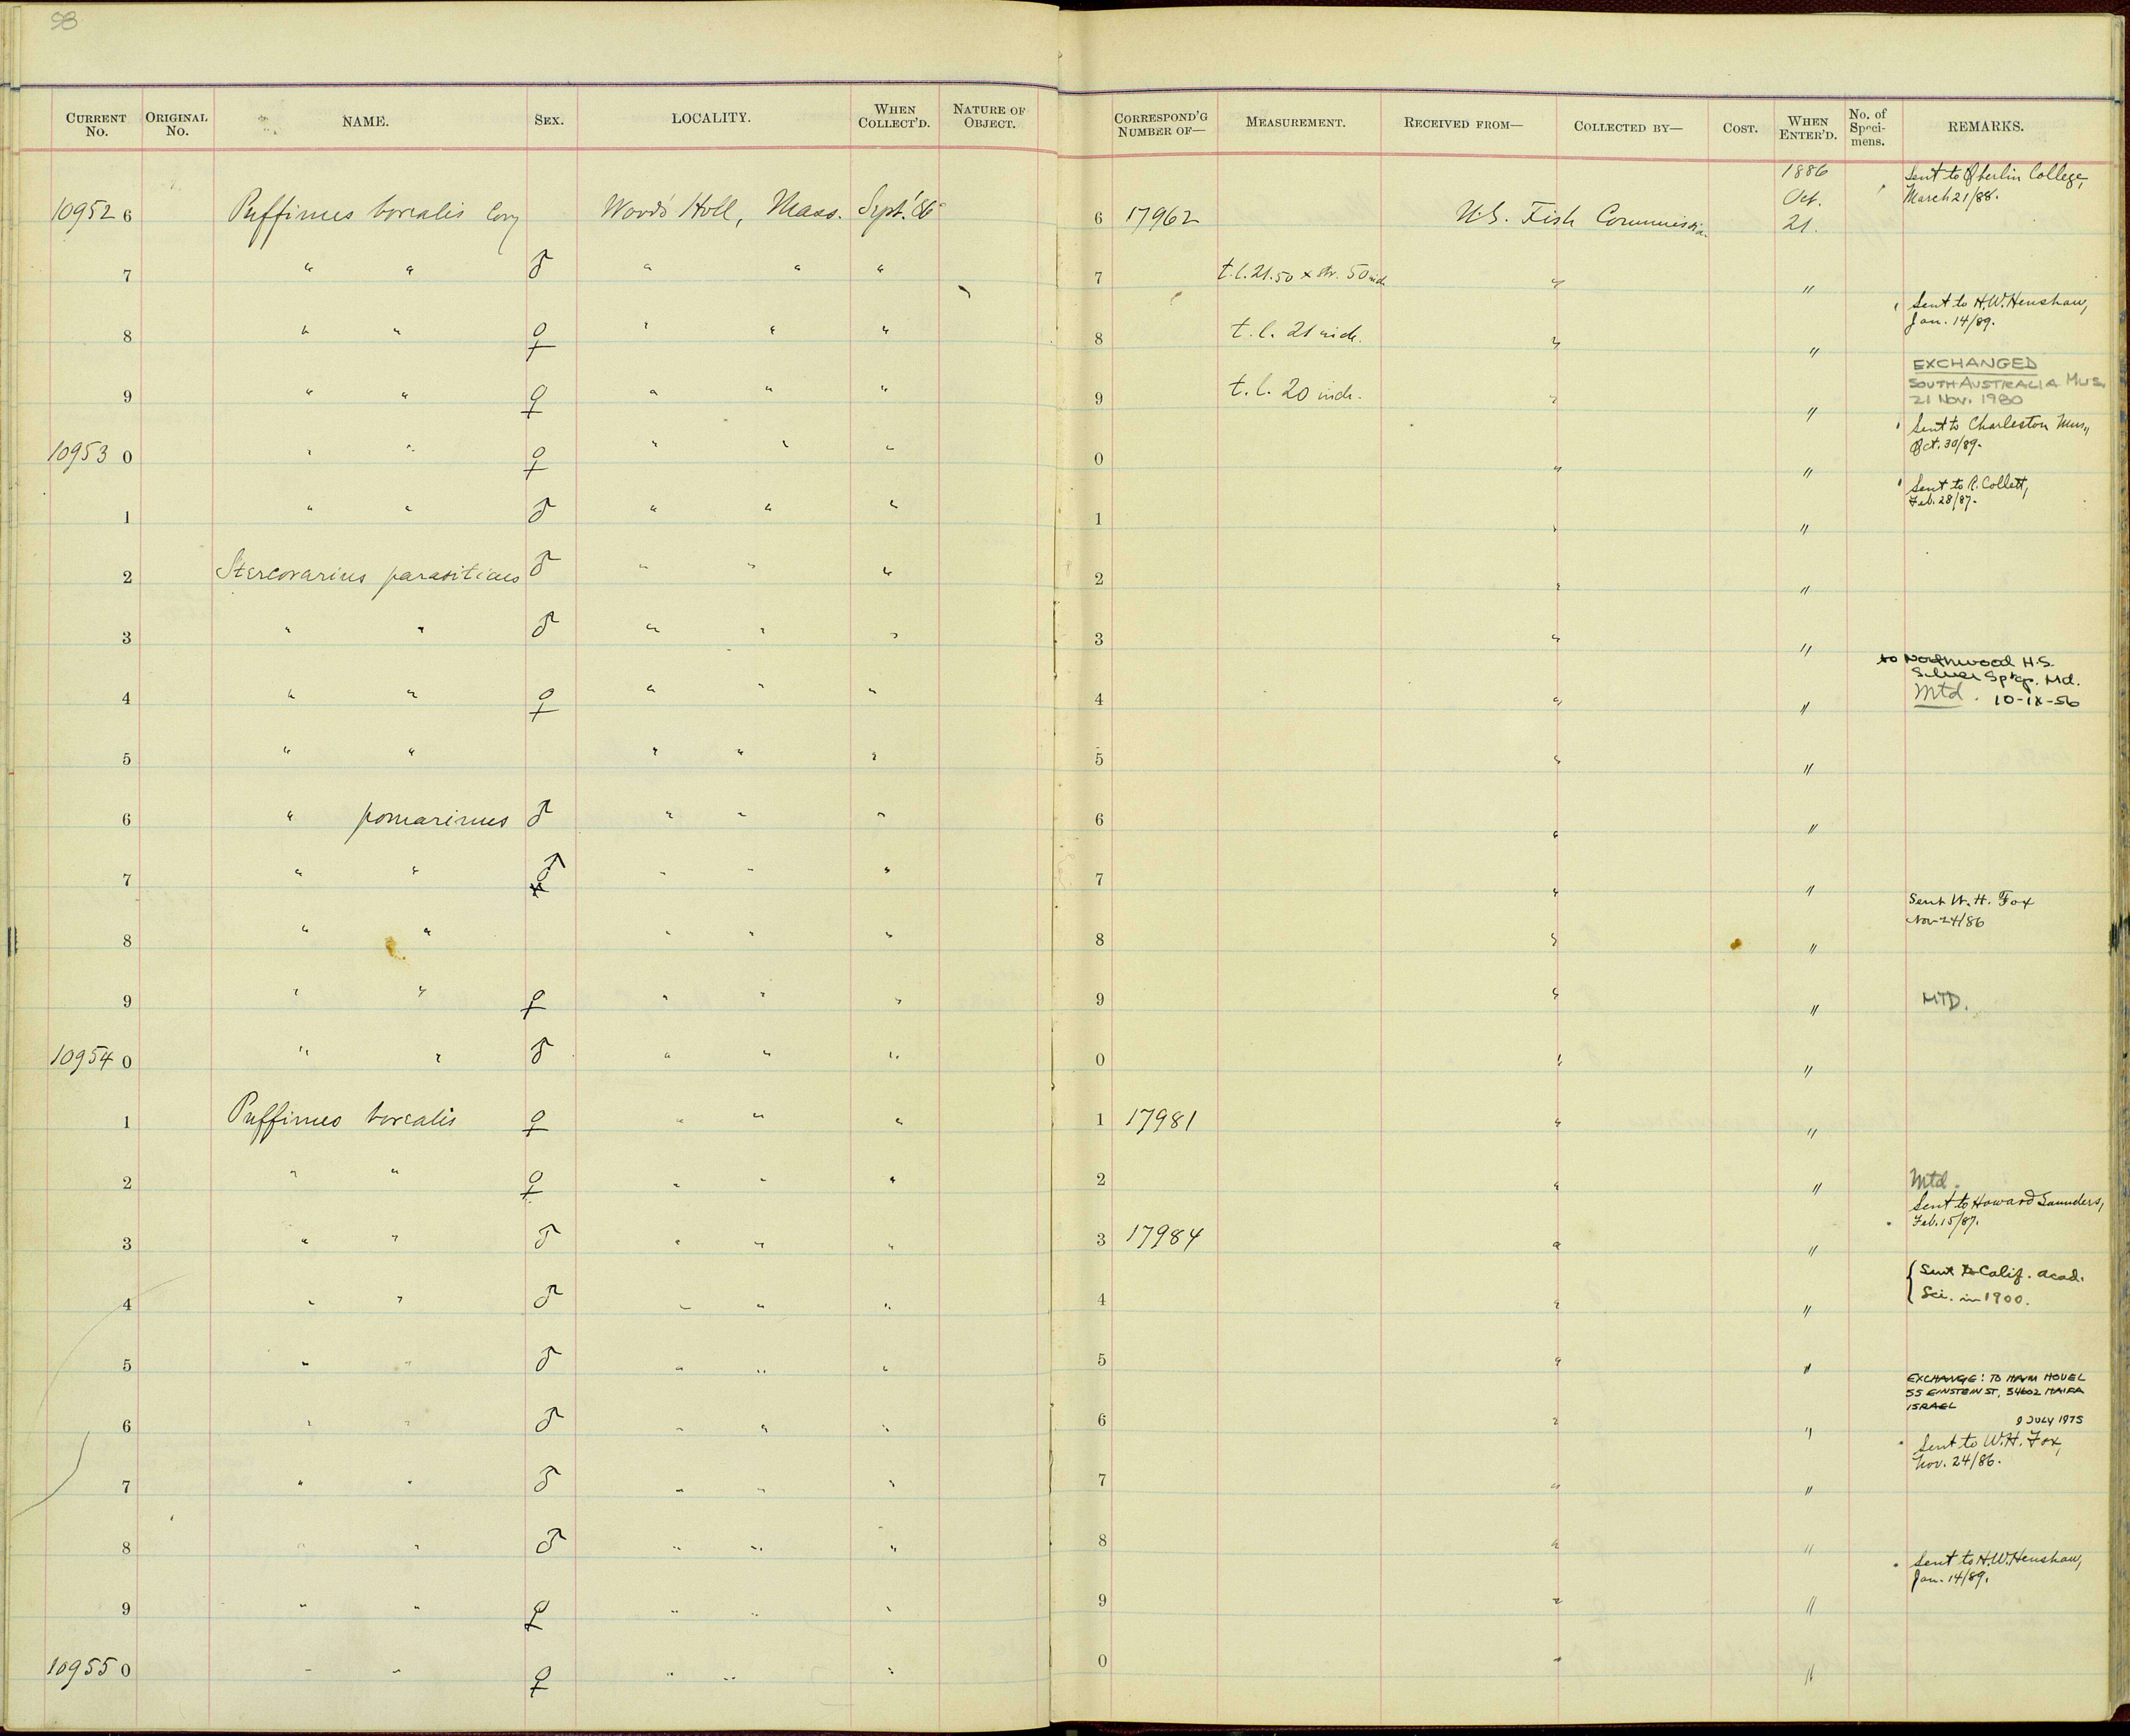 58
CURRENT No. ORIGINAL No. NAME. SEX. LOCALITY. WHEN COLLECT'D. NATURE OF OBJECT. CORRESPOND'G NUMBER OF— MEASUREMENT. RECEIVED FROM— COLLECTED BY— COST. WHEN ENTER'D. No. of Speci-mens. REMARKS.
10952 6 Puffinus borealis Cory Woods Holl, Mass. Sept. '86 6 17962 U.S. Fish Commission 1886 Oct. 21. Sent to Oberlin College, March 21/88.
7 " " ♂ " " " 7 t.l. 21.50 x str. 50 inch " "
8 " " ♀ " " " 8 t.l. 21 inch. " " Sent to H.W. Henshaw, Jan. 14/89.
9 " " ♀ " " " 9 t.l. 20 inch. " " EXCHANGED SOUTH AUSTRALIA MUS. 21 Nov. 1980
10953 0 " " ♀ " " " 0 " " Sent to Charleston Mus., Oct. 30/89.
1 " " ♂ " " " 1 " " Sent to R. Collett, Feb. 28/87.
2 Stercorarius parasiticus ♂ " " " 2 " "
3 " " ♂ " " " 3 " "
4 " " ♀ " " " 4 " " to Northwood H.S. Silver Sprg. Md. Mtd. 10-IX-56
5 " " " " " 5 " "
6 " pomarinus ♂ " " " 6 " "
7 " " ♂ " " " 7 " "
8 " " " " " 8 " " Sent W. H. Fox Nov 24/86
9 " " ♀ " " " 9 " " MTD.
10954 0 " " ♂ " " " 0 " "
1 Puffinus borealis ♀ " " " 1 17981 " "
2 " " ♀ " " " 2 " " Mtd.
3 " " ♂ " " " 3 17984 " " Sent to Howard Saunders, Feb. 15/87.
4 " " ♂ " " " 4 " " { Sent to Calif. Acad. Sci. in 1900.
5 " " ♂ " " " 5 " "
6 " " ♂ " " " 6 " " EXCHANGE: TO HAIM HOVEL 55 EINSTEIN ST, 34602 HAIFA ISRAEL 9 JULY 1975
7 " " ♂ " " " 7 " " Sent to W.H. Fox, Nov. 24/86.
8 " " ♂ " " " 8 " "
9 " " ♀ " " " 9 " " Sent to H.W. Henshaw, Jan. 14/89.
10955 0 " " ♀ " " " 0 " "